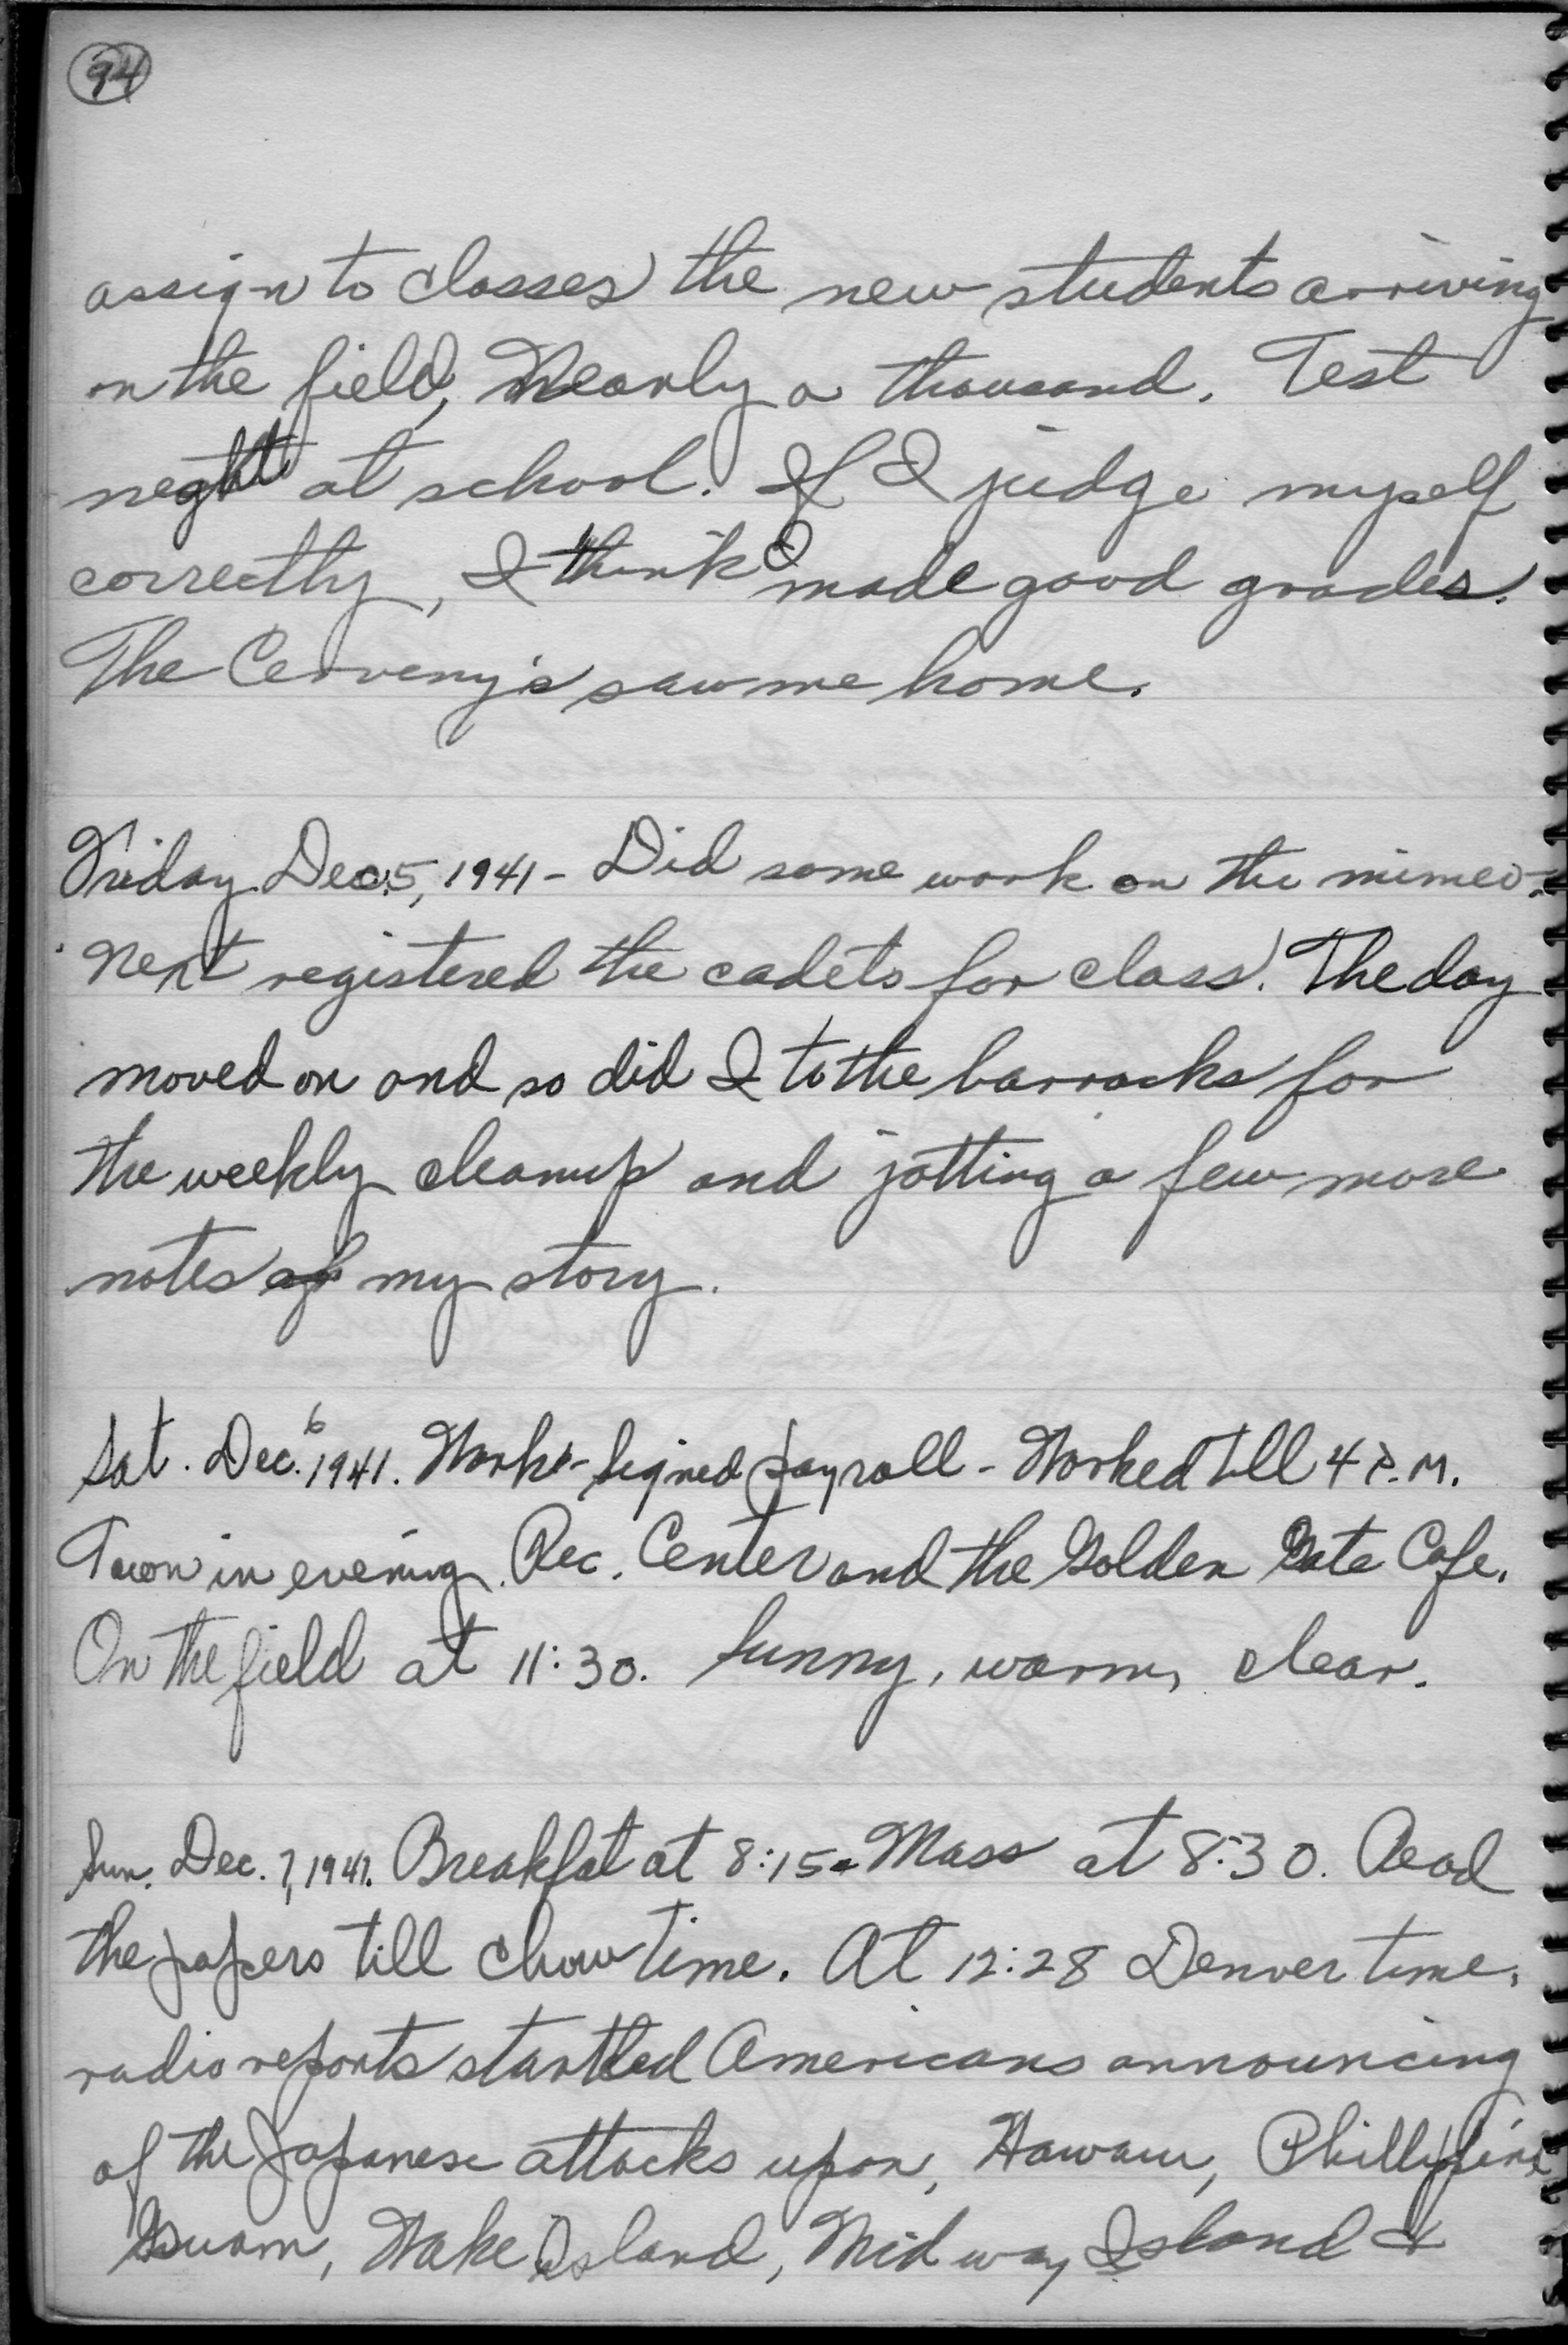 94
assign to classes the new students arriving
on the field, Nearly a thousand. Test
neght at school. If I judge myself
correctly, I think I made good grades.
The Cerveny's saw me home.
Friday Dec. 5, 1941 - Did some work on the mimeo.
Next registered the cadets for class. The day
moved on and so did I to the barracks for
the weekly cleanup and jotting a few more
notes of my story.
Sat. Dec. 6 1941. Work - Signed payroll - Worked till 4 P.M.
Town in evening. Rec. Center and the Golden Gate Cafe.
On the field at 11:30. Sunny, warm, clear.
Sun. Dec. 7, 1941. Breakfat at 8:15 - Mass at 8:30. Read
the papers till chow time. At 12:28 Denver time,
radio reports startled Americans announcing
of the Japanese attacks upon, Hawaii, Phillippine
Guam, Wake Island, Midway Island &